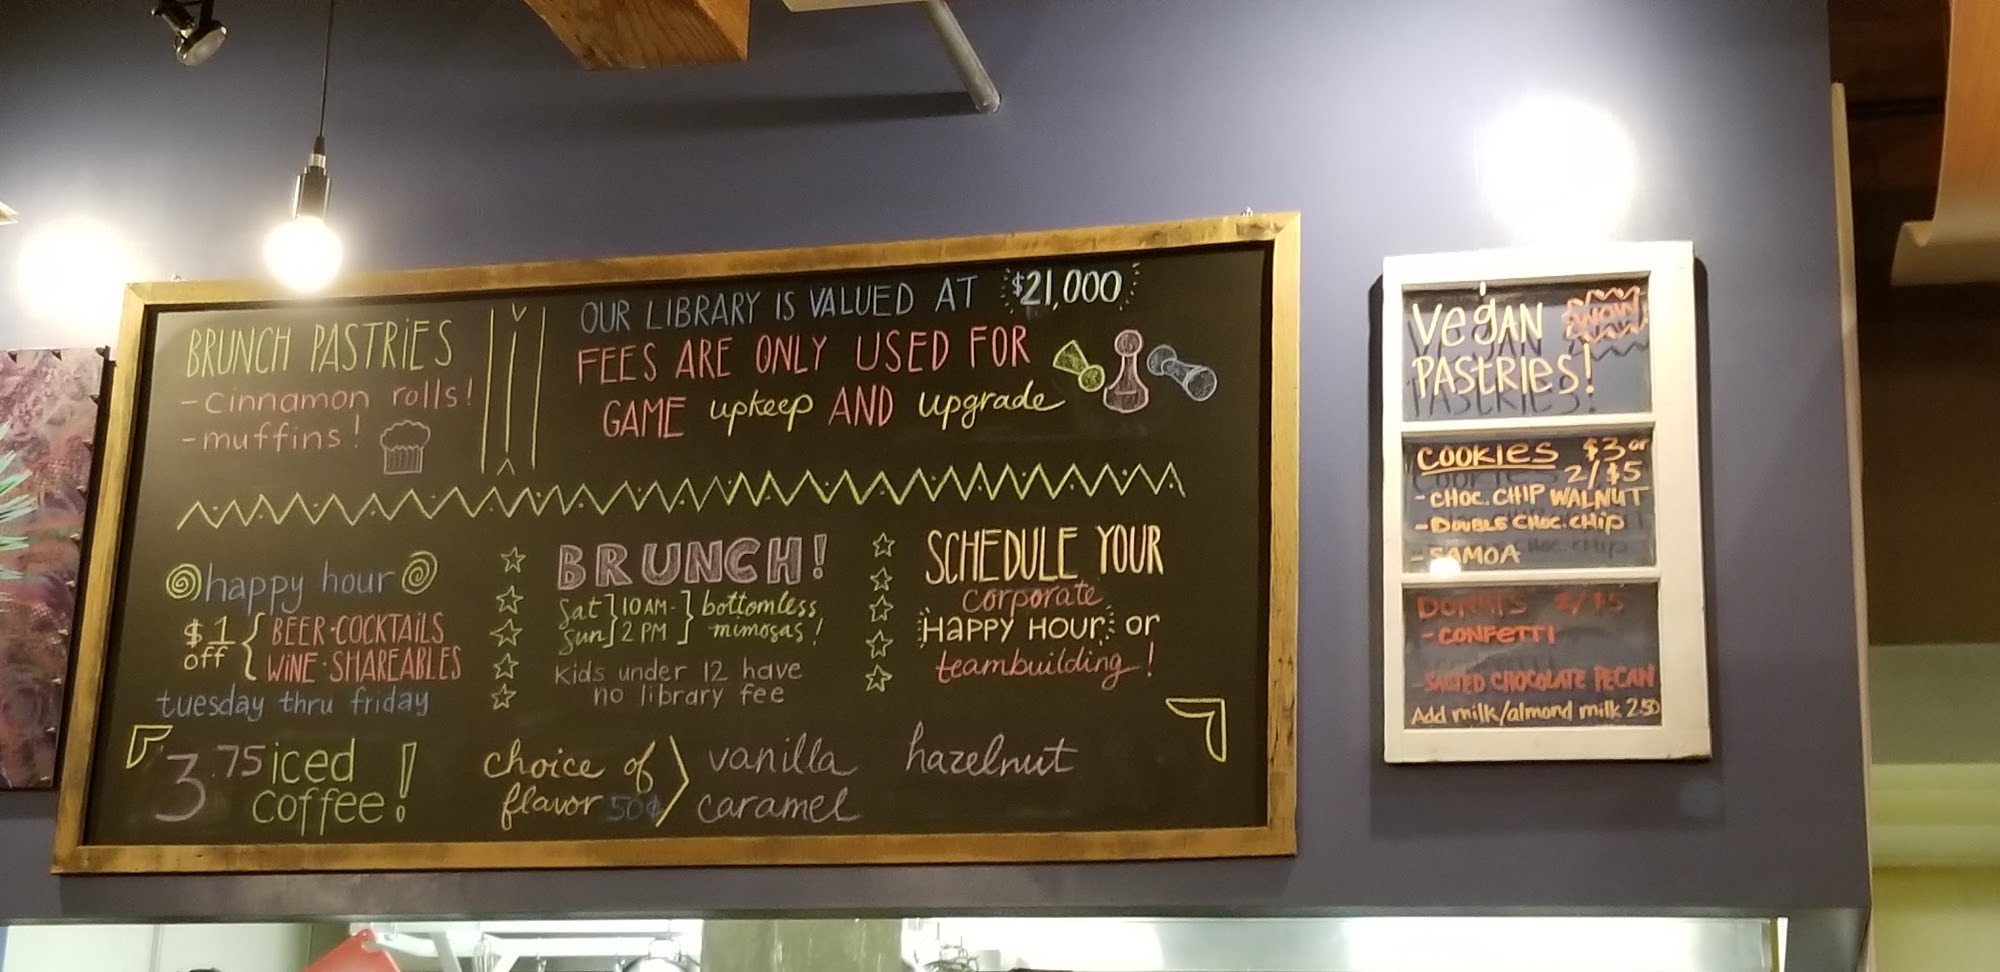 BRUNCH PASTRIES
- cinnamon rolls!
- muffins!
OUR LIBRARY IS VALUED AT $21,000
FEES ARE ONLY USED FOR
GAME upkeep AND upgrade
happy hour
$1 off { BEER · COCKTAILS
WINE · SHAREABLES
tuesday thru friday
BRUNCH!
Sat ] 10 AM - } bottomless
Sun ] 2 PM } mimosas!
Kids under 12 have
no library fee
SCHEDULE YOUR
corporate
HAPPY HOUR or
teambuilding!
3.75 iced
coffee!
choice of
flavor 50¢
vanilla hazelnut
caramel
VegAN WOW
PASTRIES!
COOKIES $3 or
2/$5
- CHOC. CHIP WALNUT
- DOUBLE CHOC. CHIP
- SAMOA
- CONFETTI
- SALTED CHOCOLATE PECAN
Add milk/almond milk 2.50